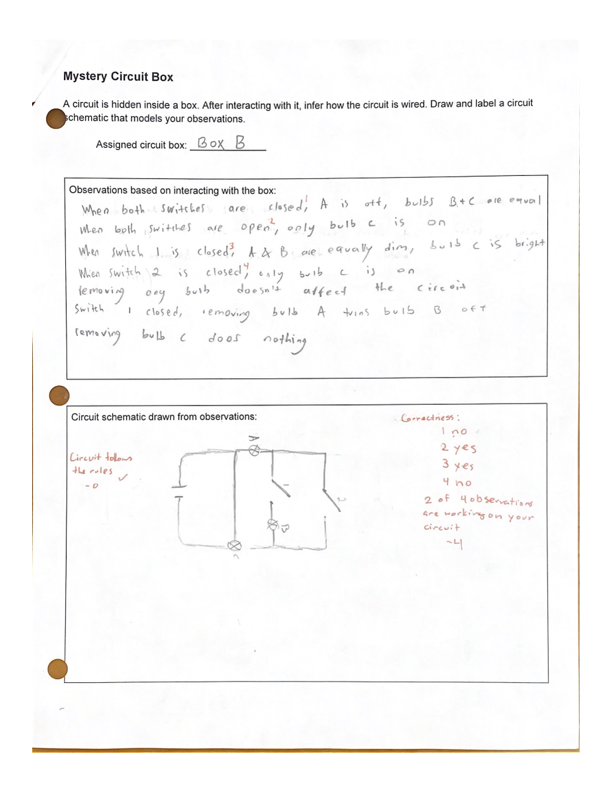 Mystery Circuit Box
A circuit is hidden inside a box. After interacting with it, infer how the circuit is wired. Draw and label a circuit
schematic that models your observations.
Assigned circuit box: Box B
Observations based on interacting with the box:
When both switches are closed,1 A is off, bulbs B+C are equal
When both switches are open,2 only bulb C is on
When switch 1 is closed,3 A & B are equally dim, bulb C is bright
When switch 2 is closed,4 only bulb C is on
removing any bulb doesn't affect the circuit
Switch 1 closed, removing bulb A turns bulb B off
removing bulb C does nothing
Circuit schematic drawn from observations:
Correctness:
1 no
2 yes
3 yes
4 no
2 of 4 observations
are working on your
circuit
-4
Circuit follows
the rules ✓
-0
A
1
2
B
C